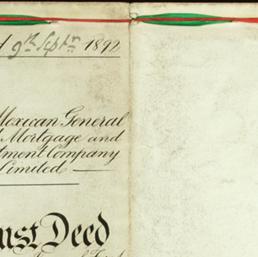 9th Septr 1892
Mexican General
Mortgage and
tment Company
Limited
ust Deed